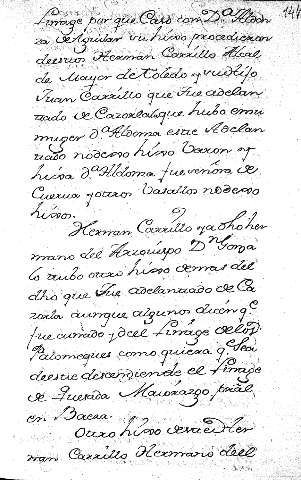 144
linage por que Caso con D.ª Aldon
za de Aguilar cu hixo procedieron
de estos Herman Carrillo Alcal
de Mayor de Toledo y su hijo
Juan Carrillo que fue adelan
tado de Cazorla que hubo en su
muger D.ª Aldonza este Adelan
tado no dexo hixo Varon y
hixa D.ª Aldonza fue señora de
Cuerva y otros Vasallos no dexo
hixos.
Hernan Carrillo ya dho her
mano del Arzobispo D.n Gonza
lo hubo otro hixo de mas del
dho que Fue adelantado de Ca
zorla aunque algunos dicen q.e
fue cuñado y de el Linage de los
Palomeques como quiera q.e sea
de este desciende el Linage
de Quesada Maiorazgo pral
en Baeza.
Otro hixo de este Her
nan Carrillo Hermano de el